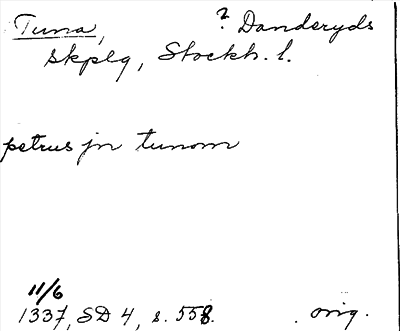 Tuna, ? Danderyds
skplg, Stockh. l.
petrus jn tunom
11/6
1337, SD 4, s. 558. orig.